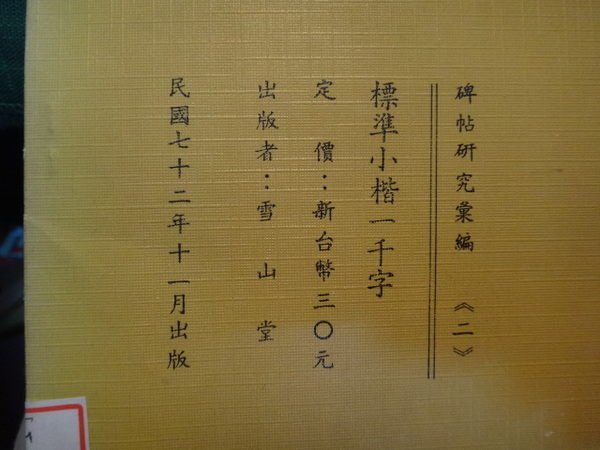 碑帖研究彙編 《二》
標準小楷一千字
定價：新台幣三〇元
出版者：雪山堂
民國七十二年十一月出版